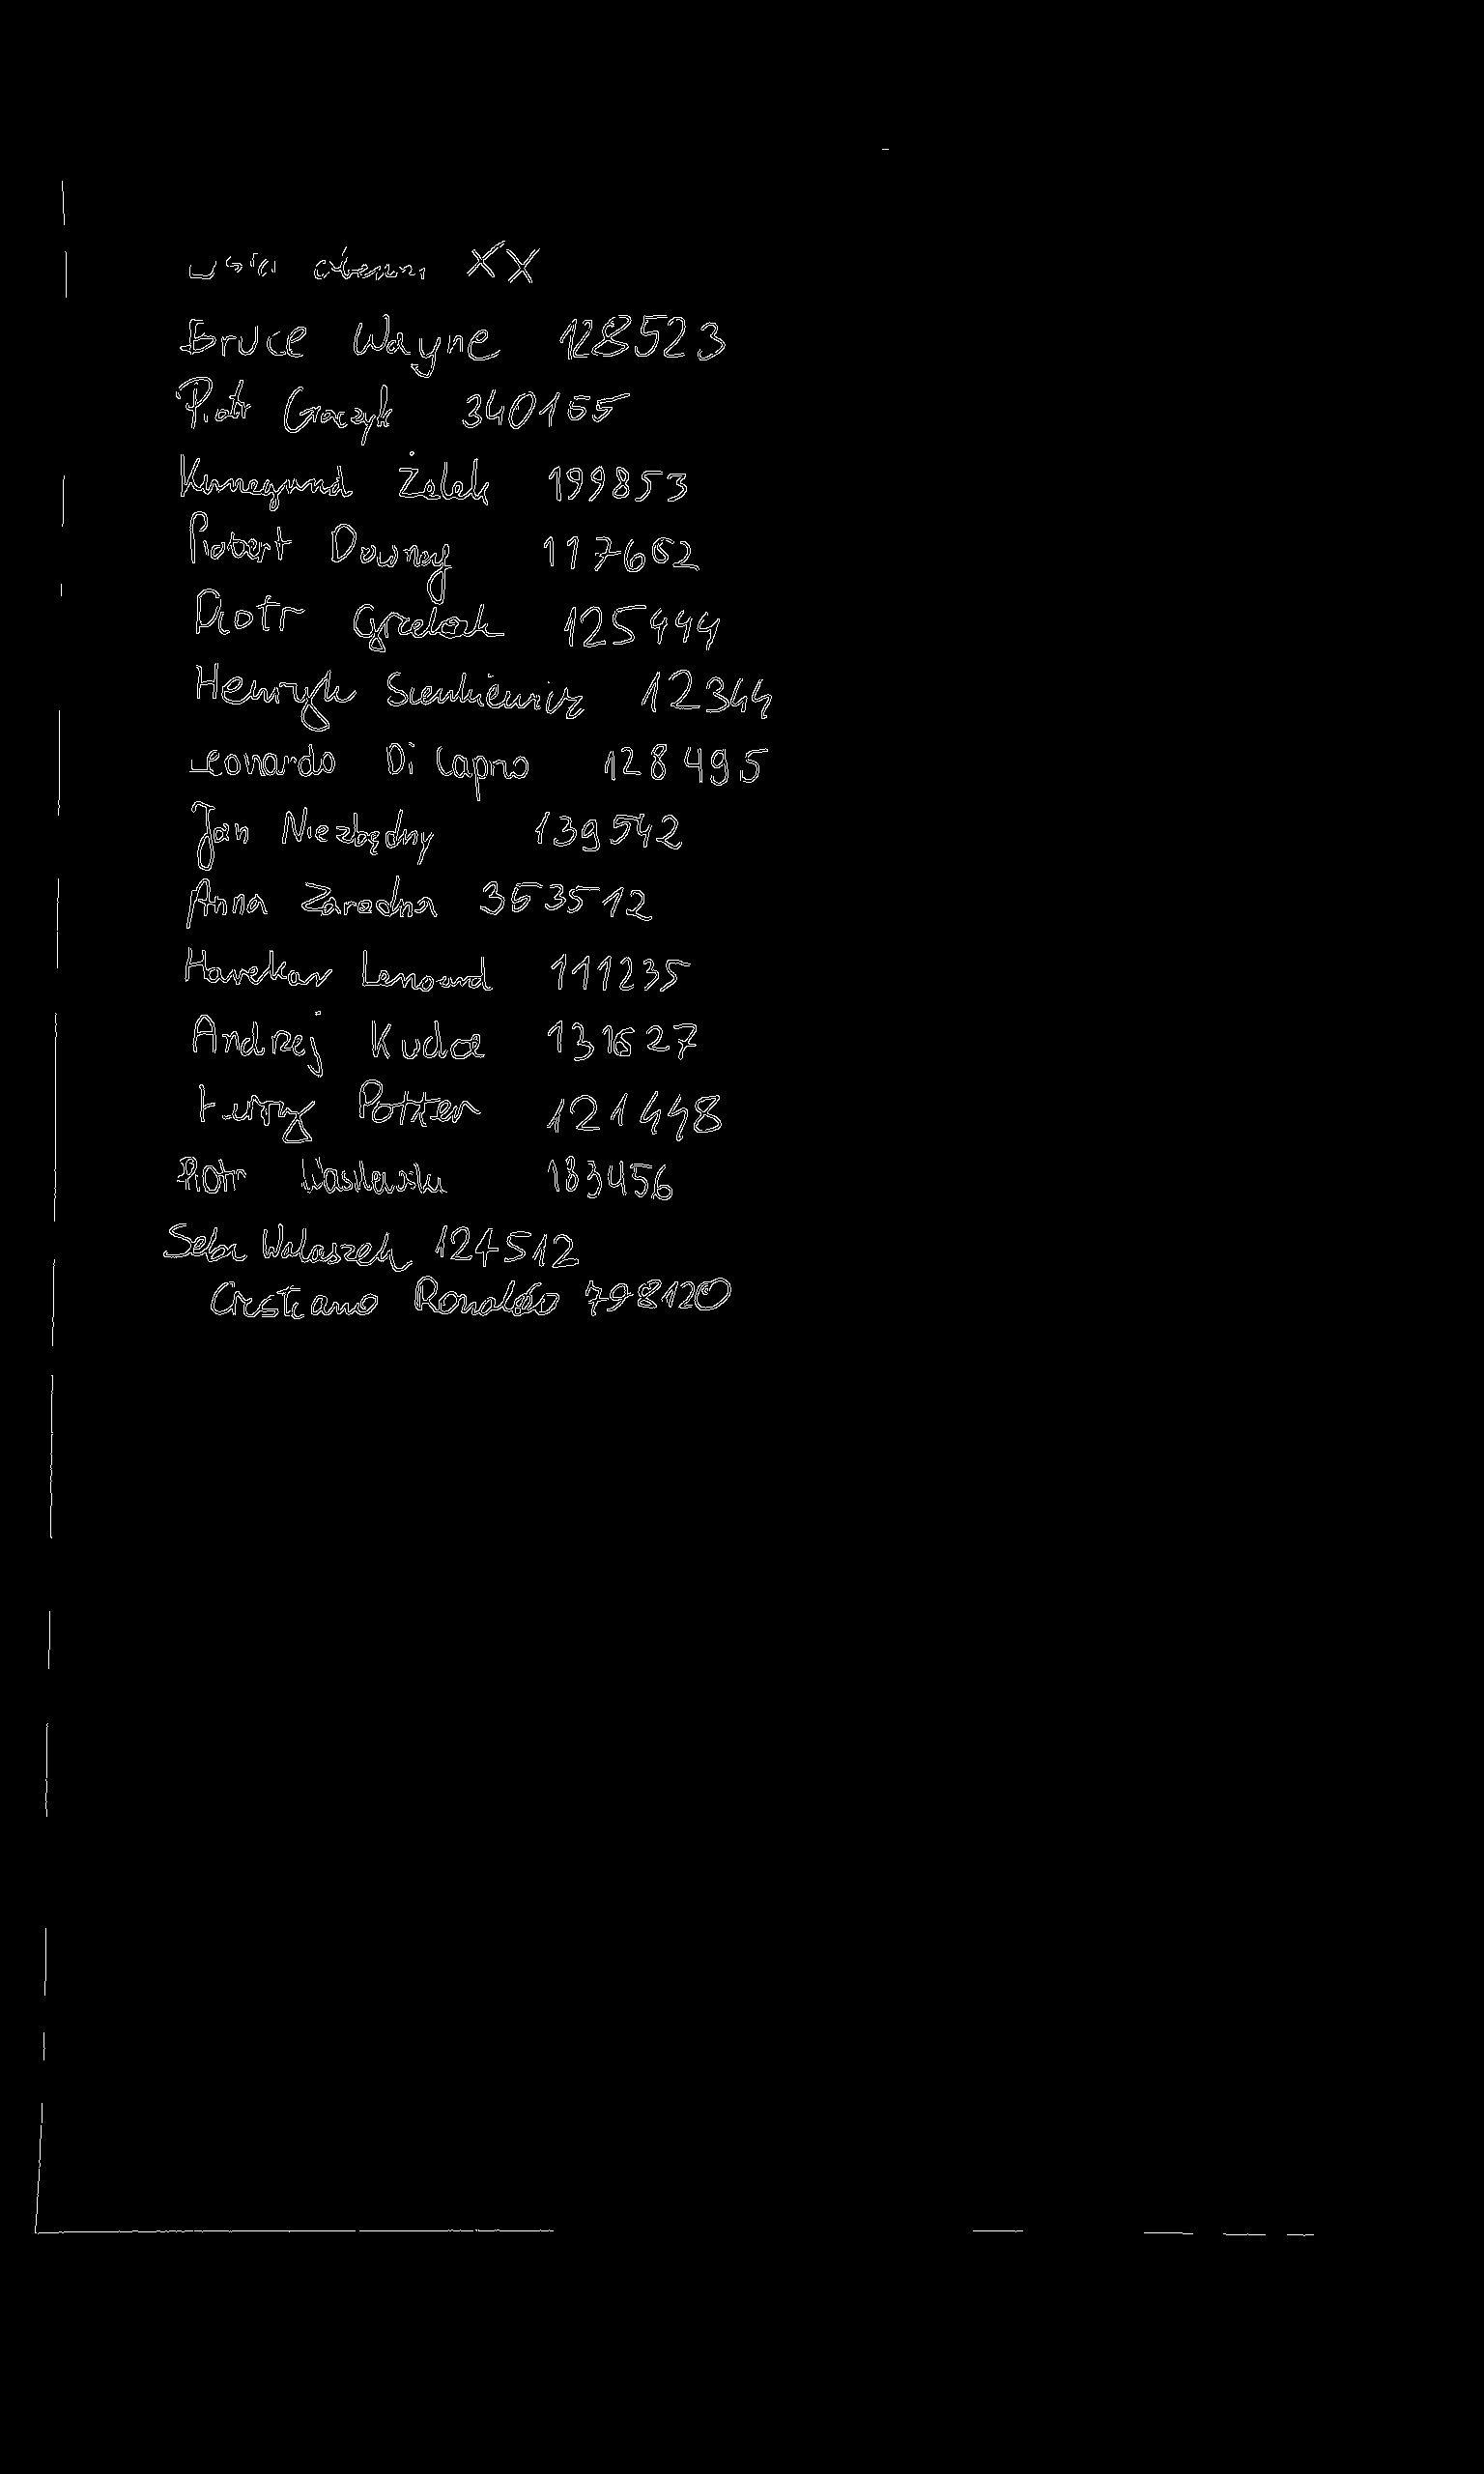 XX
Bruce Wayne 128523
Piotr Graczyk 340165
Kunegund Żelek 199853
Robert Downey 117662
Piotr Grzelak 125444
Henryk Sienkiewicz 12344
Leonardo Di Caprio 128495
Jan Niezbędny 139542
Anna Zaradna 353512
Lenoard 111235
Andrzej Kudca 131627
Harry Potter 121448
Piotr Wasilewski 183456
Seba Walaszek 124512
Crestiano Ronaldo 798120